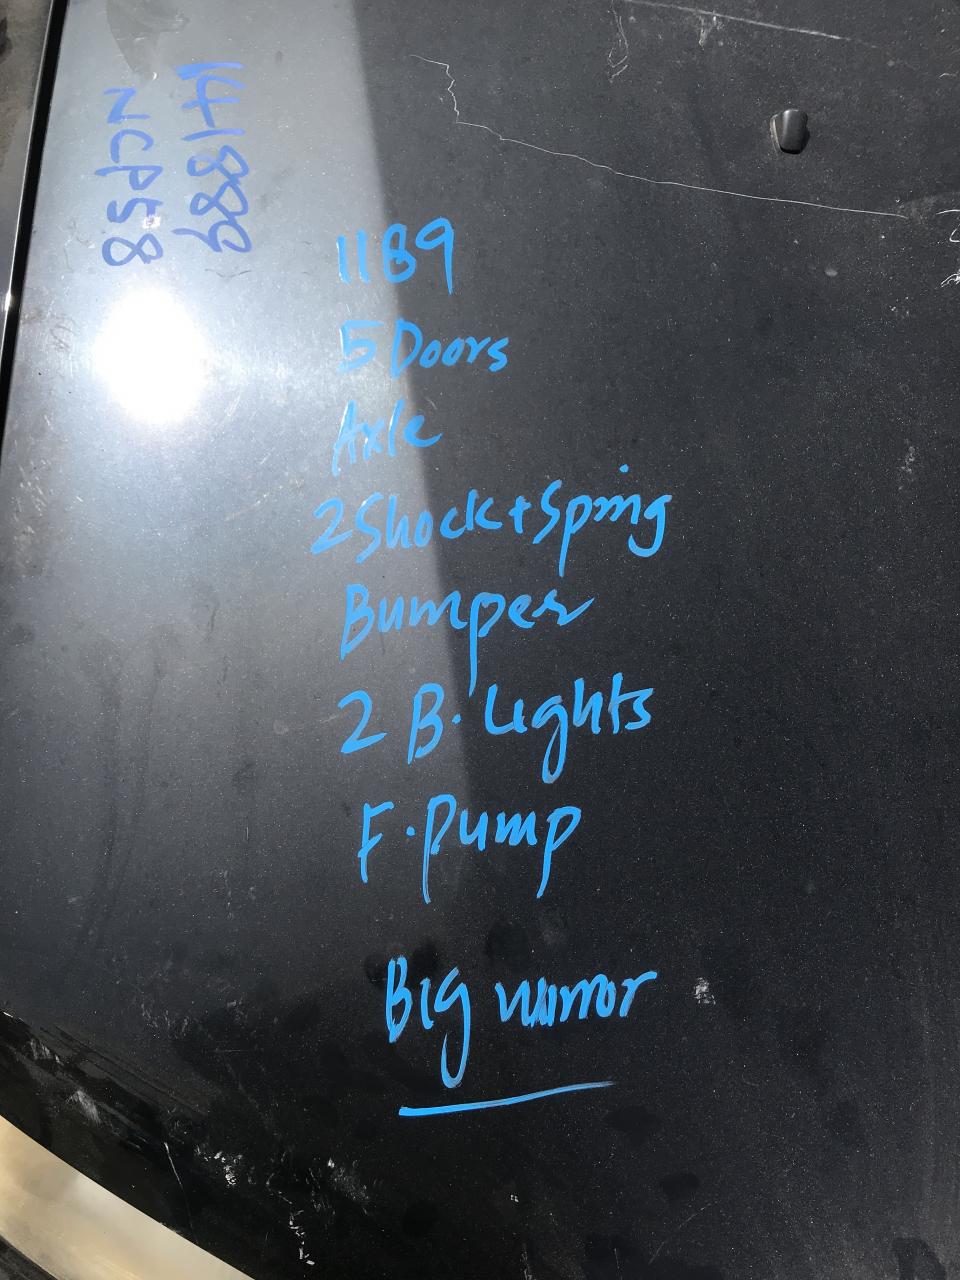 NCP58
1189
5 Doors
Axle
2 Shock + Spring
Bumper
2 B. Lights
F. Pump
Big mirror